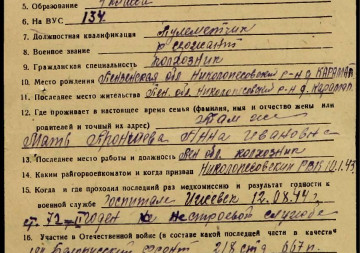 5. Образование
6. На ВУС 134
7. Должностная квалификация Пулеметчик
8. Военное звание сержант
9. Гражданская специальность колхозник
10. Место рождения Пензенская обл. Николопестровский р-н д.
11. Последнее место жительства Пен. обл. Николопестровский р-н д.
12. Где проживает в настоящее время семья (фамилия, имя и отчество жены или
родителей и точный их адрес) Там же
Мать Анна Ивановна
13. Последнее место работы и должность Пен. обл. колхозник
14. Каким райгорвоенкоматом и когда призван Николопестровский РВК 10.1.43
15. Когда и где проходил последний раз медкомиссию и результат годности к
военной службе Госпитале 12.08.44г.
ст. 72-II годен к нестроевой службе
16. Участие в Отечественной войне (в составе какой последней части в качестве
Белорусский фронт 218 стд 667 п.